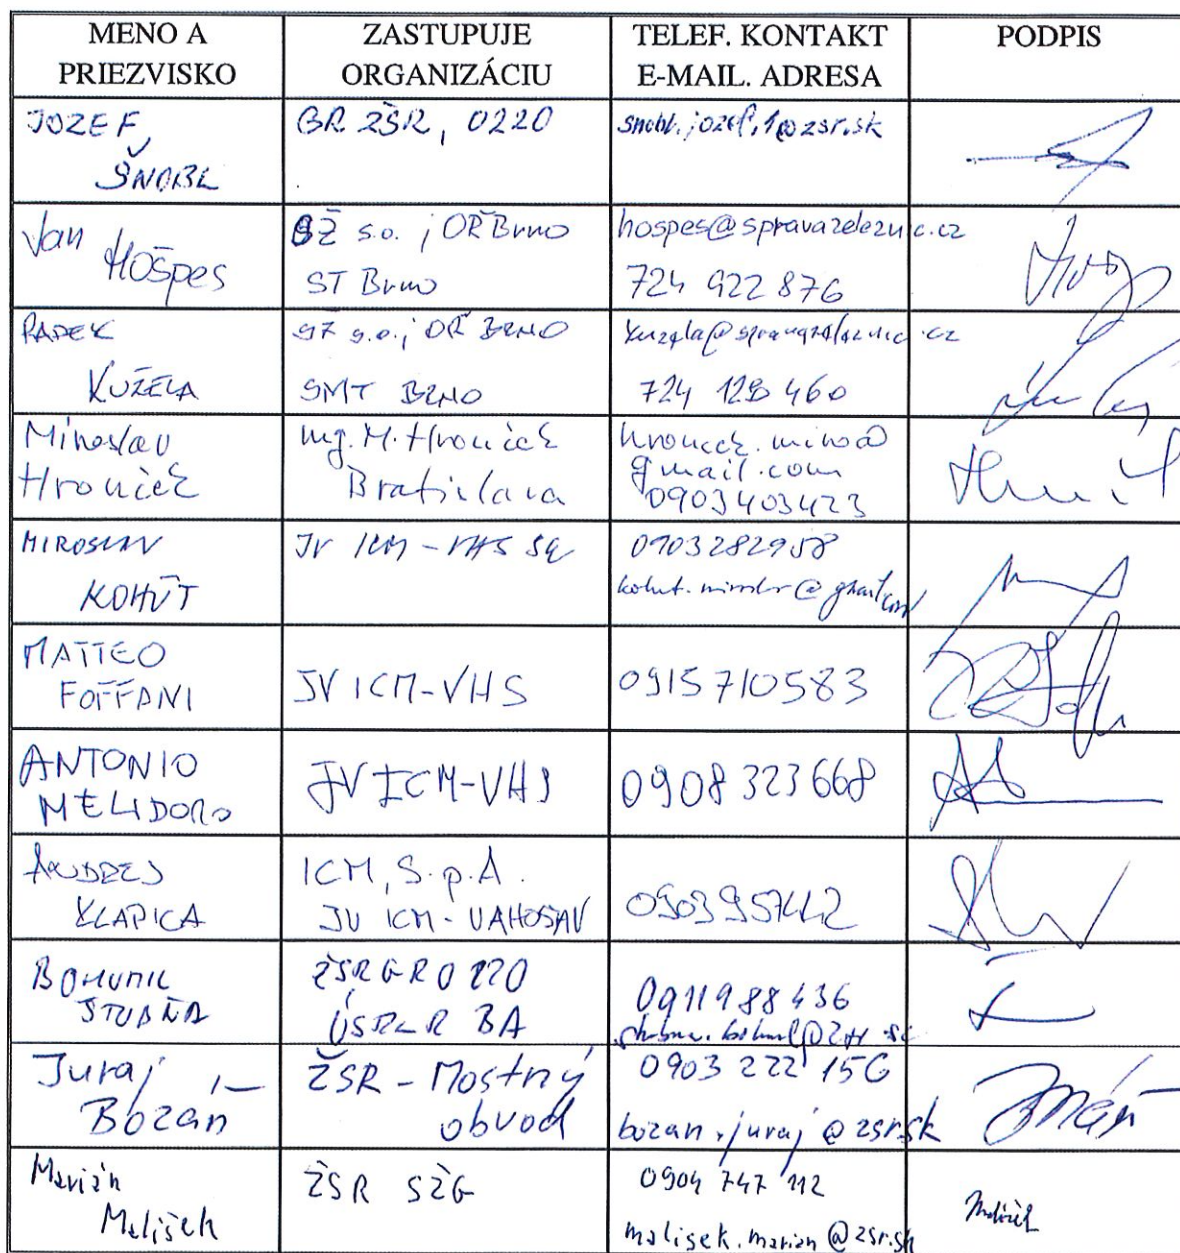 MENO A
PRIEZVISKO
ZASTUPUJE
ORGANIZÁCIU
TELEF. KONTAKT
E-MAIL. ADRESA
PODPIS
JOZEF
ŠNOBL
GR ŽSR, 0220
snobl.jozef.1@zsr.sk
Jan
Hošpes
SŽ s.o. ; OŘ Brno
ST Brno
hospes@spravazeleznic.cz
724 922 876
RADEK
KUŽELA
SŽ s.o.; OŘ BRNO
SMT BRNO
kuzela@spravazeleznic.cz
724 129 460
Miroslav
Hronček
Ing. M. Hronček
Bratislava
hroncek.miro@
gmail.com
0903403423
MIROSLAV
KOHÚT
JV ICM-VHS
0903282958
MATTEO
FOFFANI
JV ICM-VHS
0915710583
ANTONIO
MELIDORO
JV ICM-VHS
0908 323 668
ANDREJ
KLAPICA
ICM, S.p.A.
JV ICM-VAHOSTAV
BOHUMIL
STUPŇA
ŽSR GR 0220
BA
0911988436
Juraj
Bozáň
ŽSR - Mostný
obvod
0903 222 156
bozan.juraj@zsr.sk
Marián
Malíšek
ŽSR SŽG
0904 747 112
malisek.marian@zsr.sk